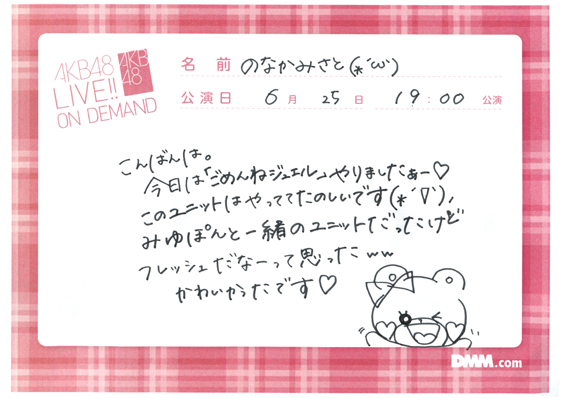 AKB48
LIVE!!
ON DEMAND
AKB
48
名前 のなかみさと(*´ω`)
公演日 6月 25日 19:00 公演
こんばんは。
今日は「ごめんねジュエル」やりましたぁー♡
このユニットはやっててたのしいです(*´∇`),
みゆぽんと一緒のユニットだったけど
フレッシュだなーって思ったこww
かわいかったです♡
DMM.com